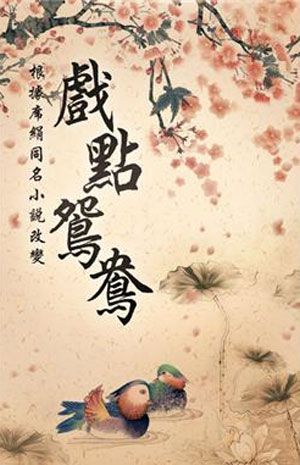 戲點鴛鴦
根據席絹同名小說改變